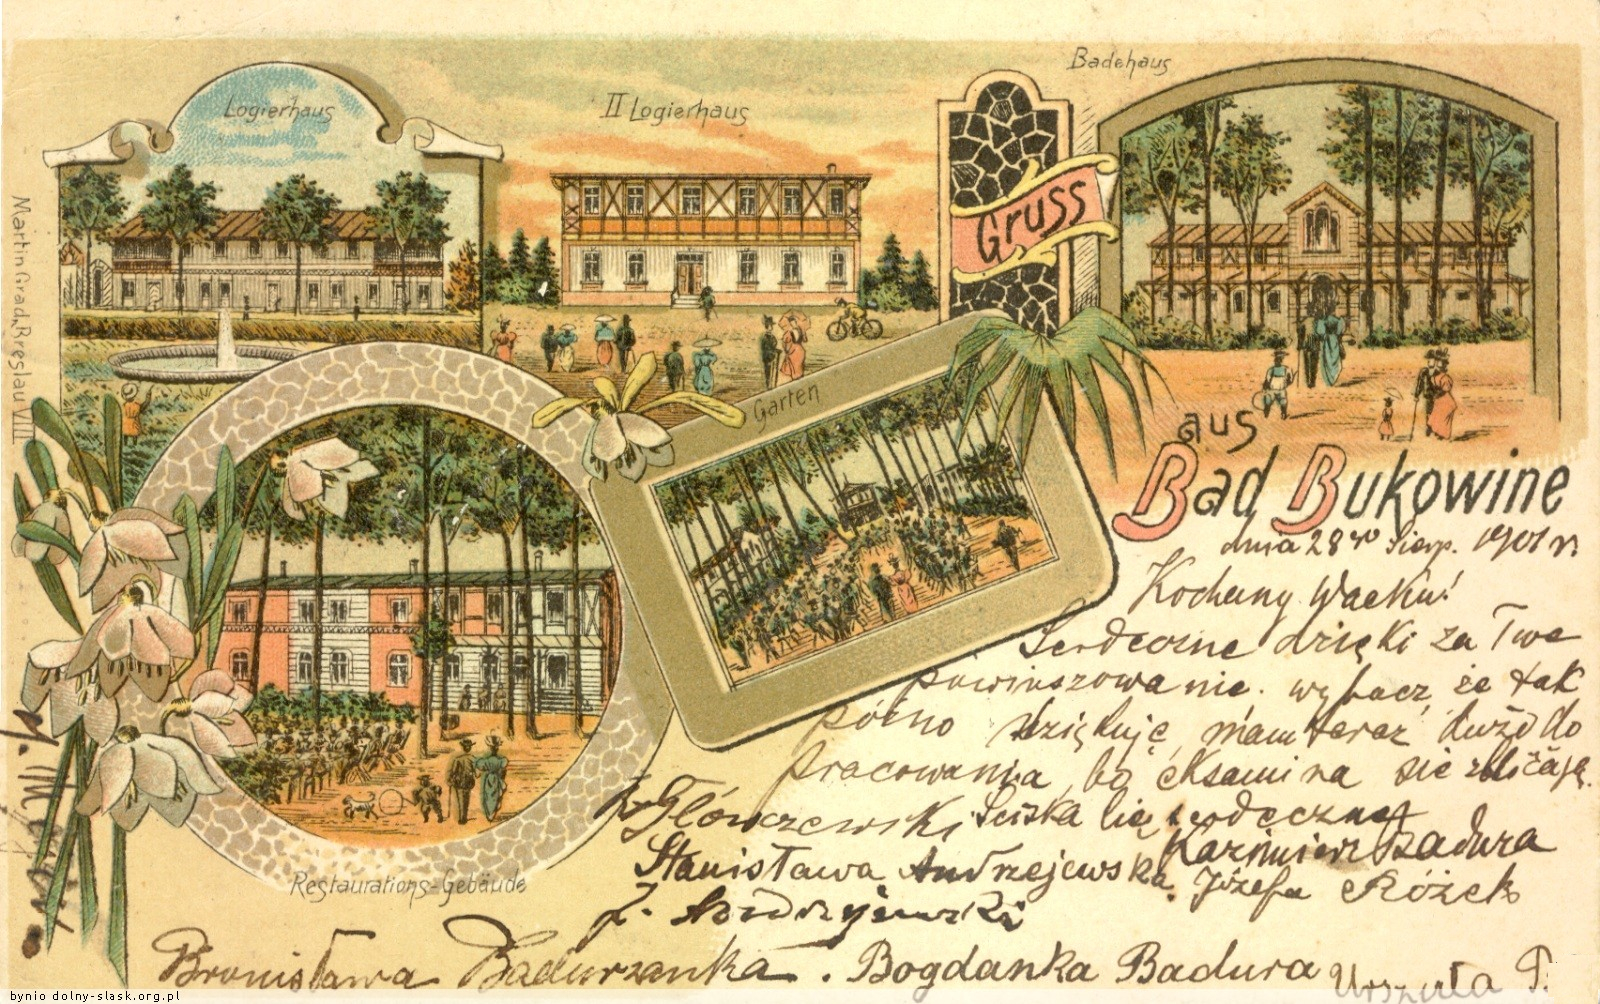 Logierhaus
II Logierhaus
Badehaus
Gruss
aus
Bad Bukowine
Garten
Restaurations-Gebäude
Martin Grad, Breslau VIII
dnia 28go Sierp. 1901 r.
Kochany Wacku!
Serdeczne dzięki za Twe
powinszowanie. wybacz, że tak
późno dziękuję, mam teraz dużo do
pracowania, bo eksamina się zbliżają.
Ściska Cię serdecznie
Kazimierz Badura
Główczewski
Stanisława Andrzejewska. Józefa Różek
J. Andrzejewski
Bronisława Badurzanka. Bogdanka Badura
Urszula
bynio dolny-slask.org.pl